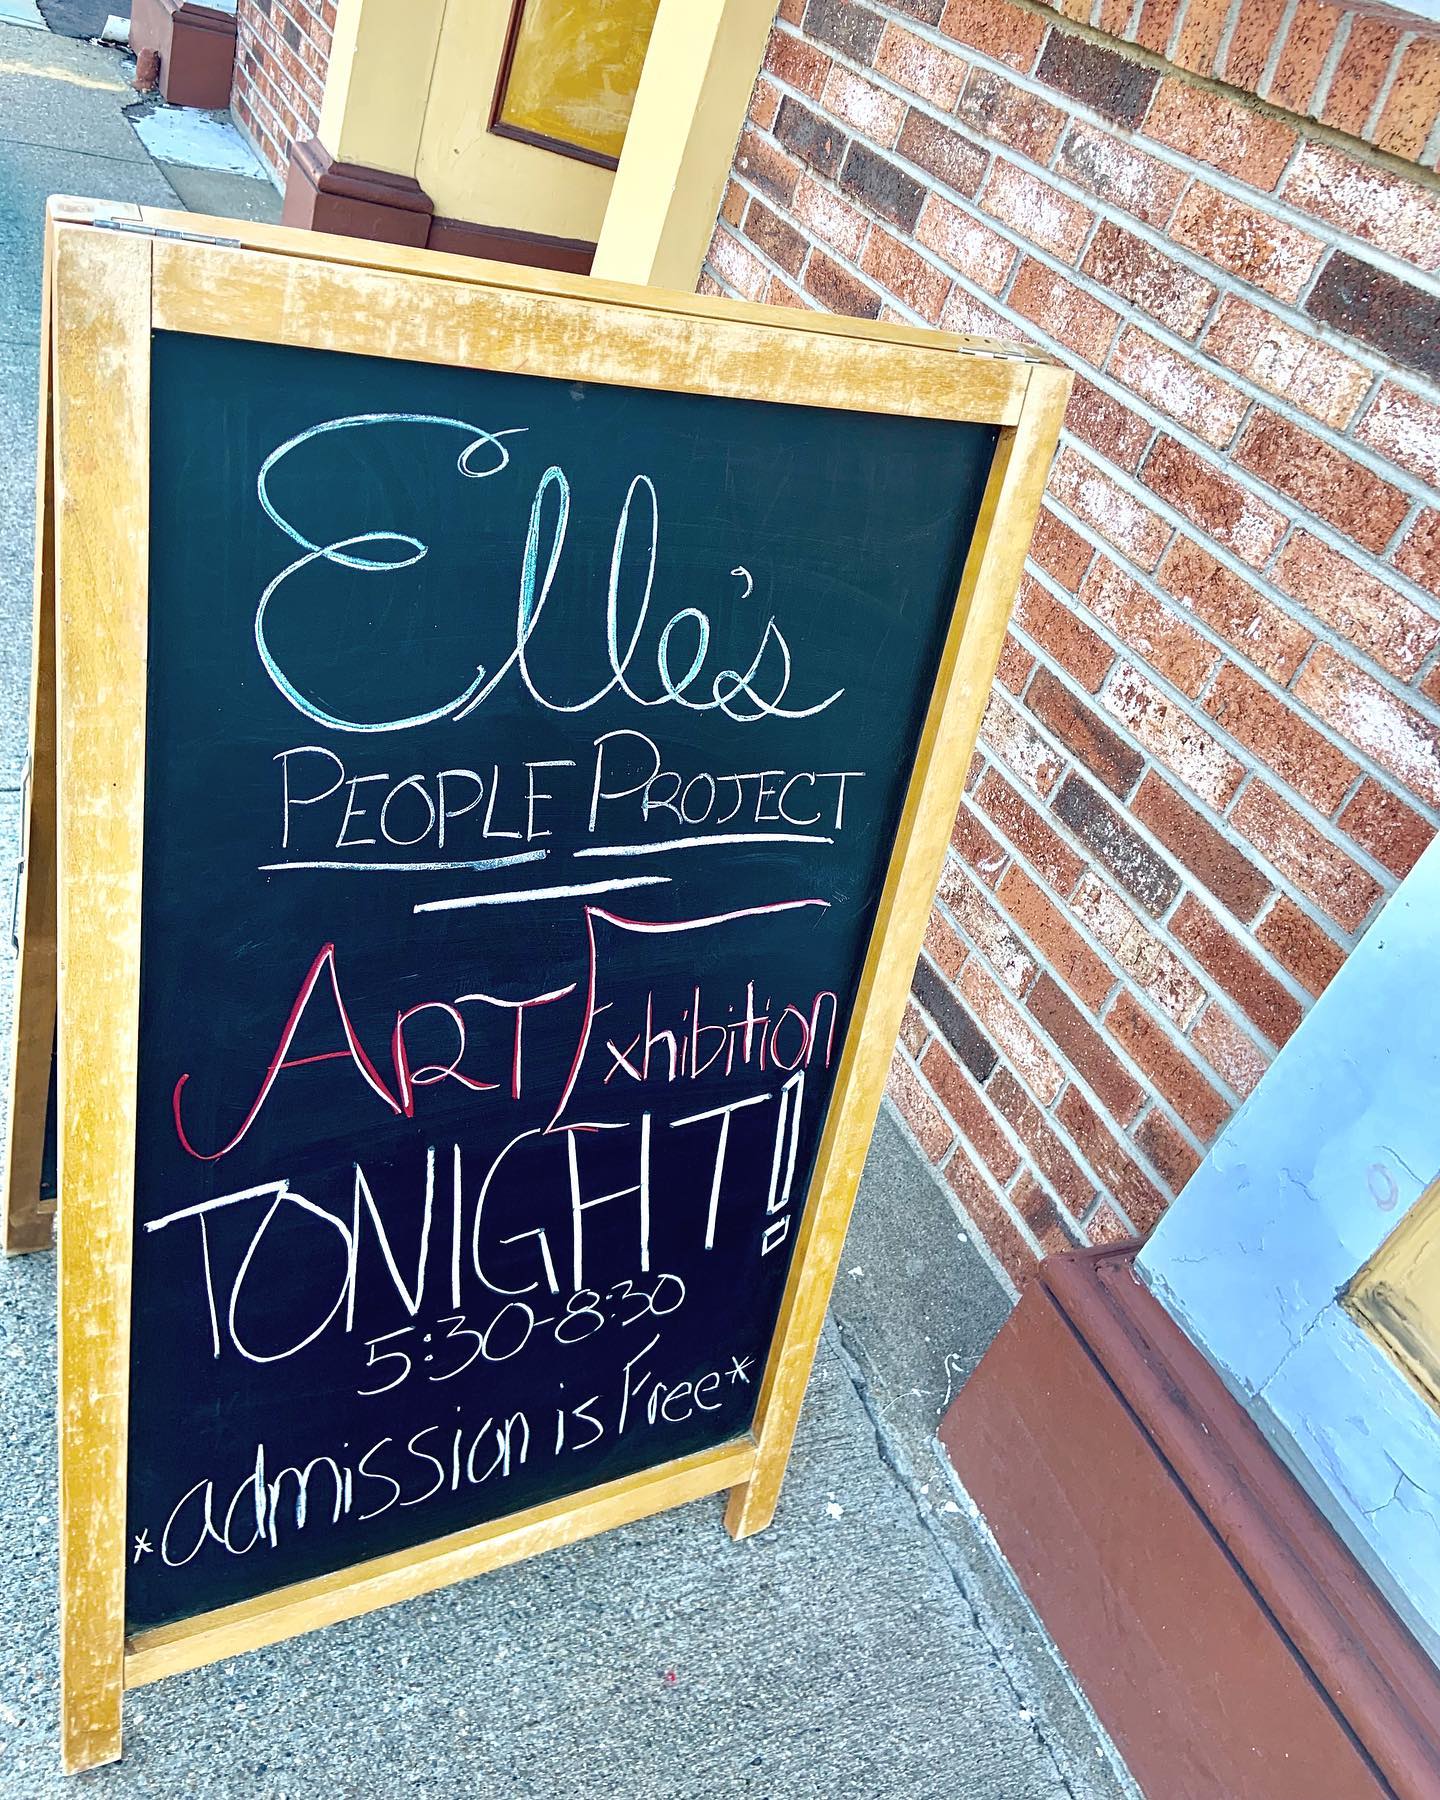 Elle's
PEOPLE PROJECT
ART Exhibition
TONIGHT!
5:30-8:30
*admission is Free*